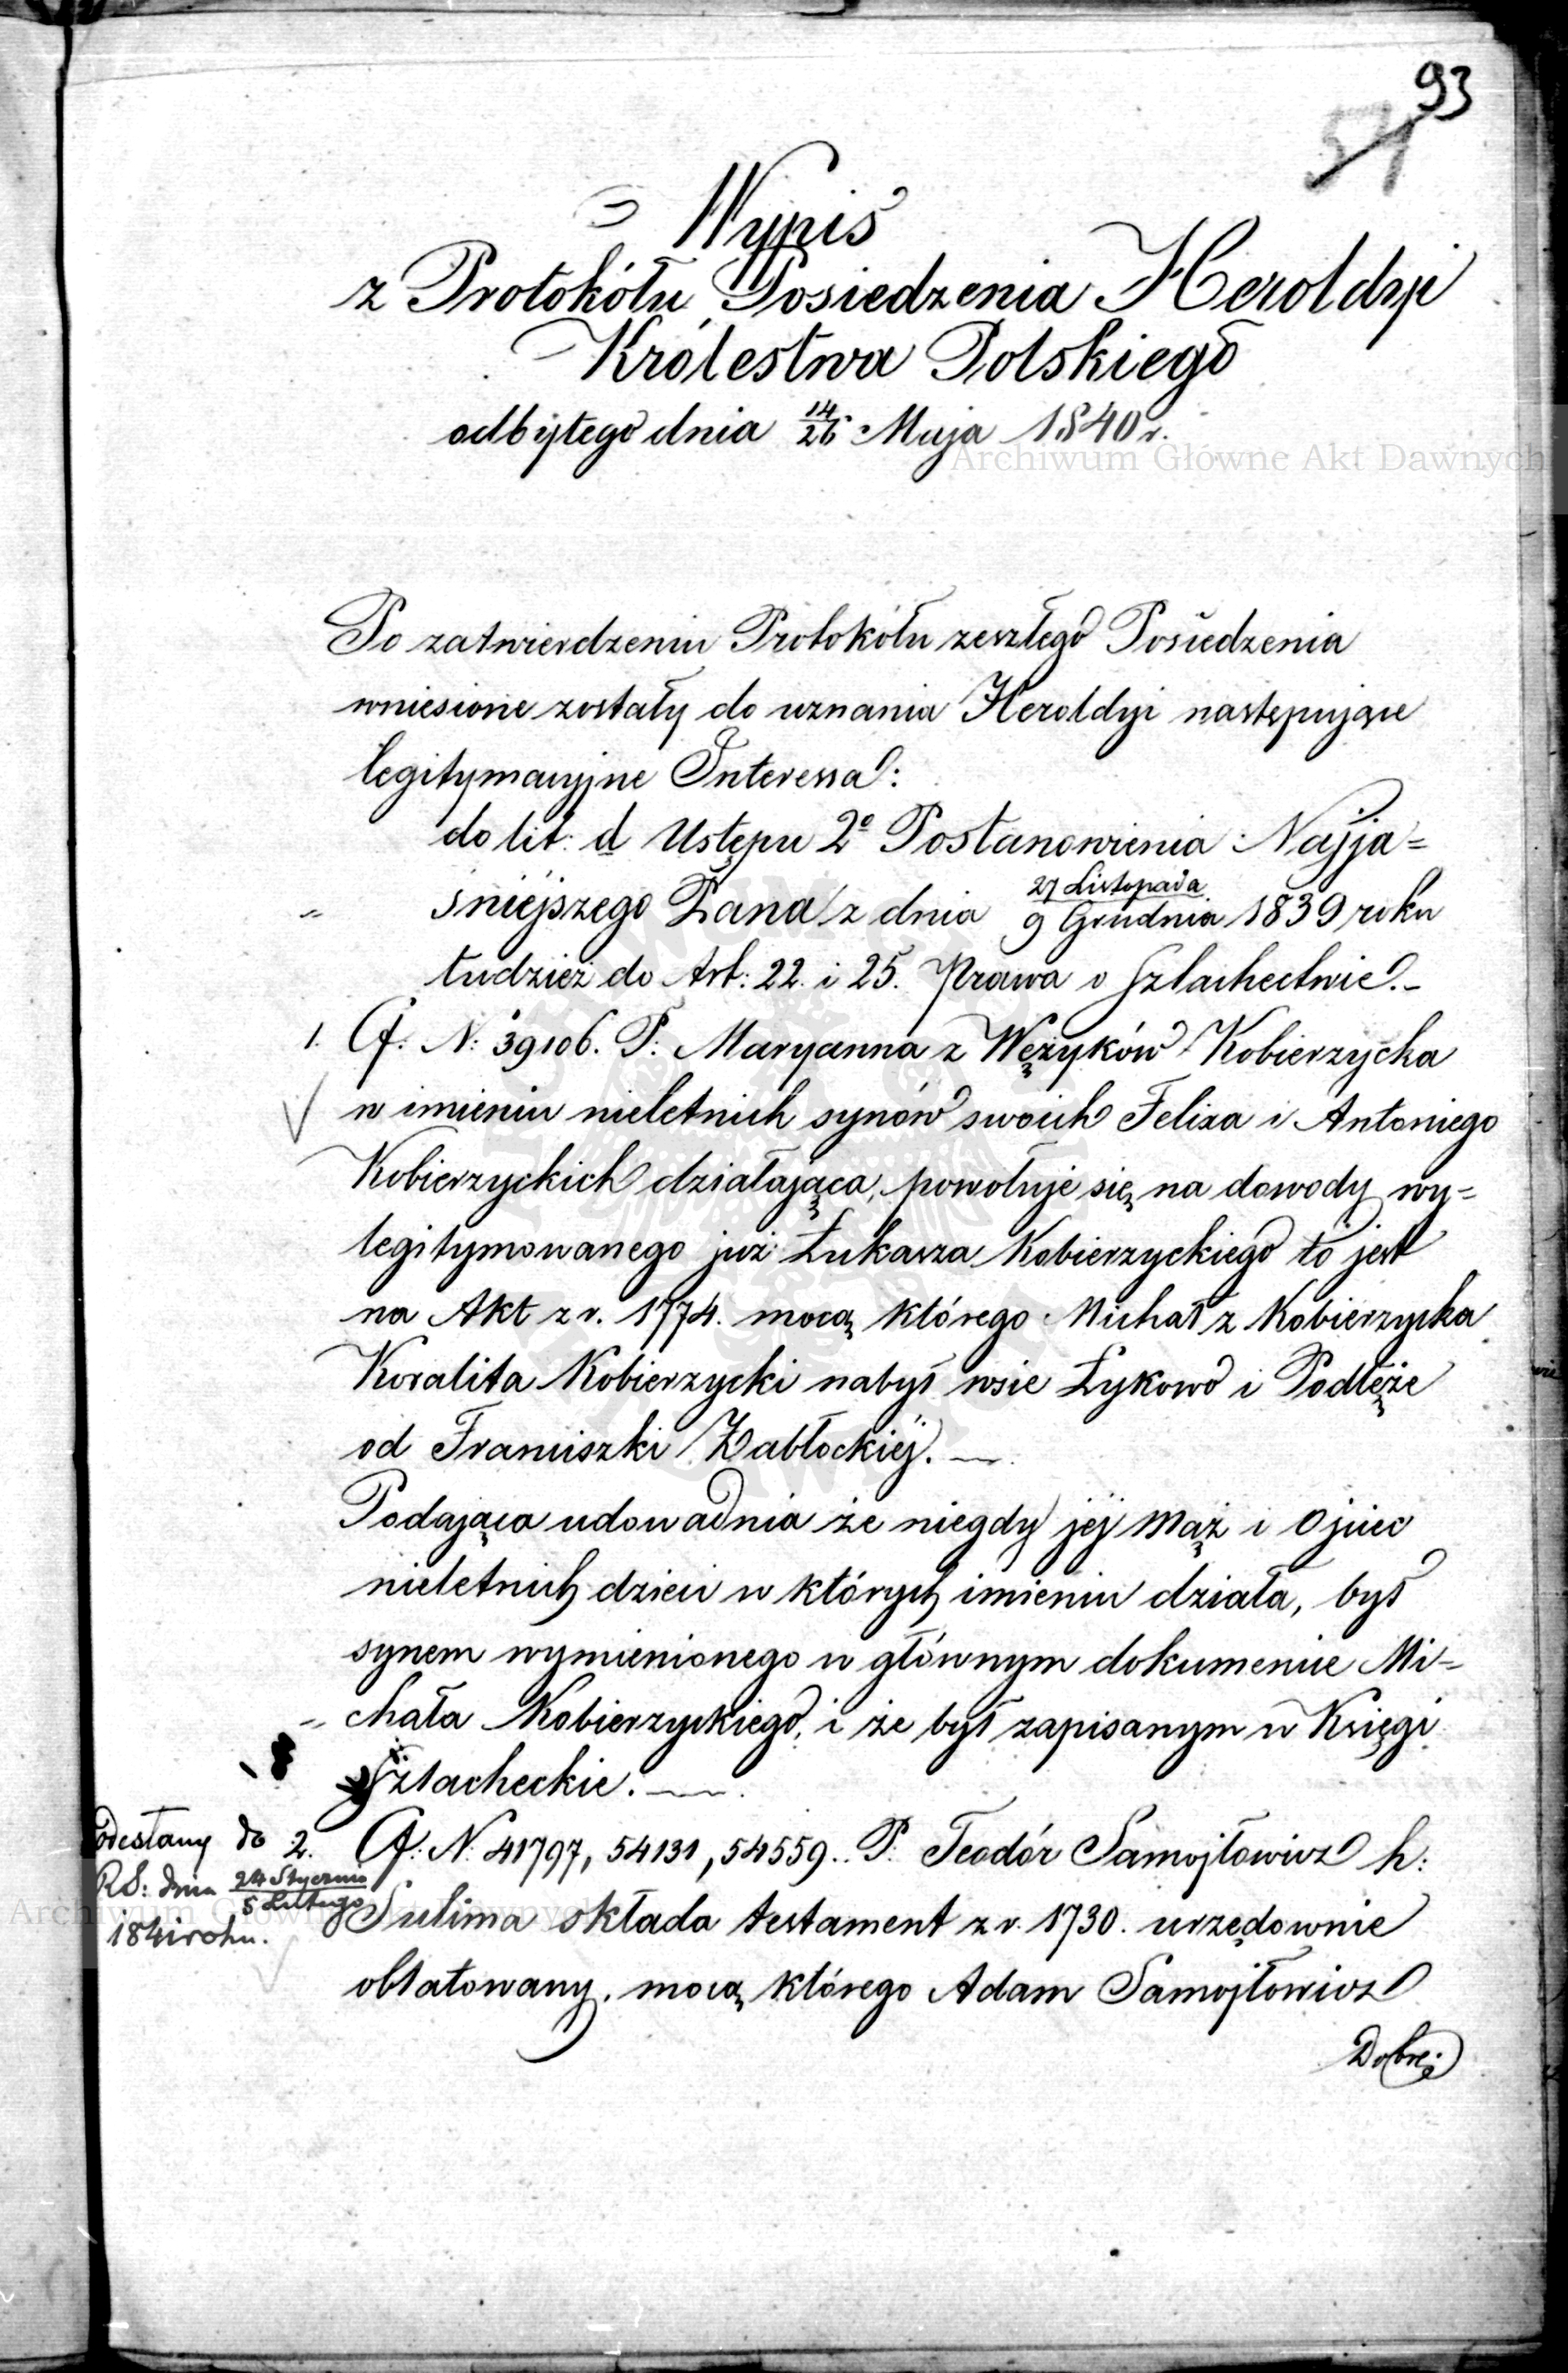 93
51
Wypis
z Protokółu Posiedzenia Heroldyi
Królestwa Polskiego
odbytego dnia 14/26 Maja 1840 r.
Archiwum Główne Akt Dawnych
Po zatwierdzeniu Protokółu zeszłego Posiedzenia
wniesione zostały do uznania Heroldyi następujące
legitymacyjne Interessa:
do lit: d Ustępu 2º Postanowienia Najja=
śniejszego Pana z dnia 27 Listopada/9 Grudnia 1839 roku
tudzież do Art: 22. i 25. Prawa o Szlachectwie.
1. N: 39106. P: Maryanna z Wężyków Kobierzycka
w imieniu nieletnich synów swoich Felixa i Antoniego
Kobierzyckich działająca, powołuje się na dowody wy=
legitymowanego już Łukasza Kobierzyckiego to jest
na Akt z r. 1774. mocą którego Michał z Kobierzycka
Koralita Kobierzycki nabył wsie Łykowo i Podłęże
od Franciszki Zabłockiéj.
Podająca udowadnia że niegdy jéj Mąż i Ojciec
nieletnich dzieci w których imieniu działa, był
synem wymienionego w głównym dokumencie Mi=
chała Kobierzyckiego, i że był zapisanym w Księgi
Szlacheckie.
odesłany do
R.S: dnia 24 Stycznia/5 Lutego
1841 roku.
2. N: 41797, 54131, 54559. P: Teodór Samojłowicz h:
Sulima składa testament z r. 1730. urzędownie
oblatowany, mocą którego Adam Samojłowicz
Archiwum Główne Akt Dawnych